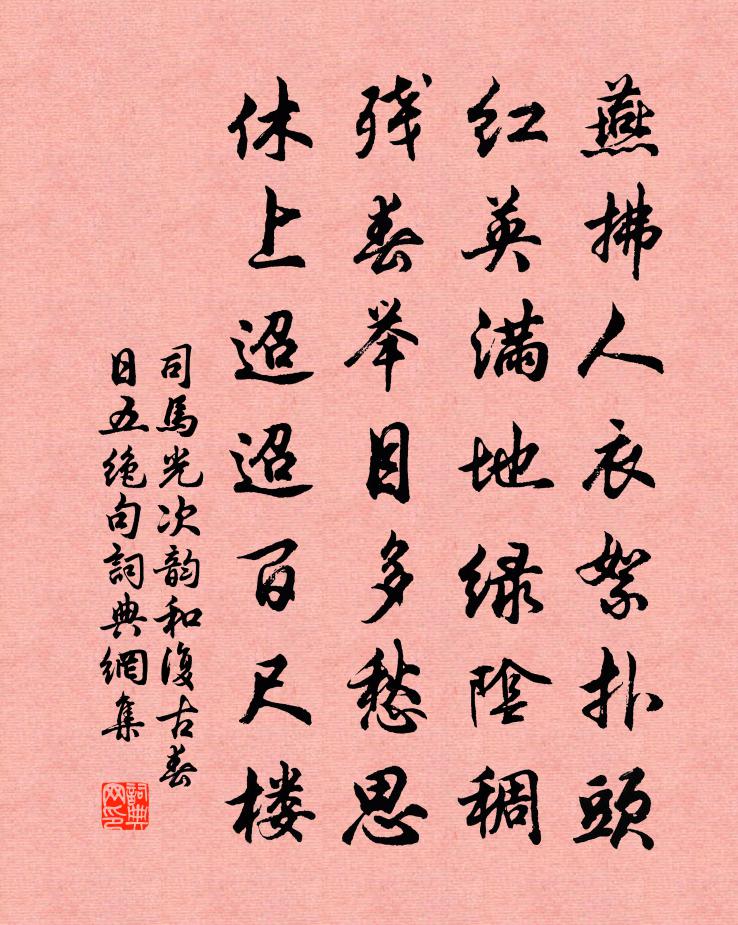 燕拂人衣絮扑頭
红英满地绿陰稠
残春举目多愁思
休上迢迢百尺楼
司馬光次韵和復古春
日五绝句詞典網集
詞典
网印